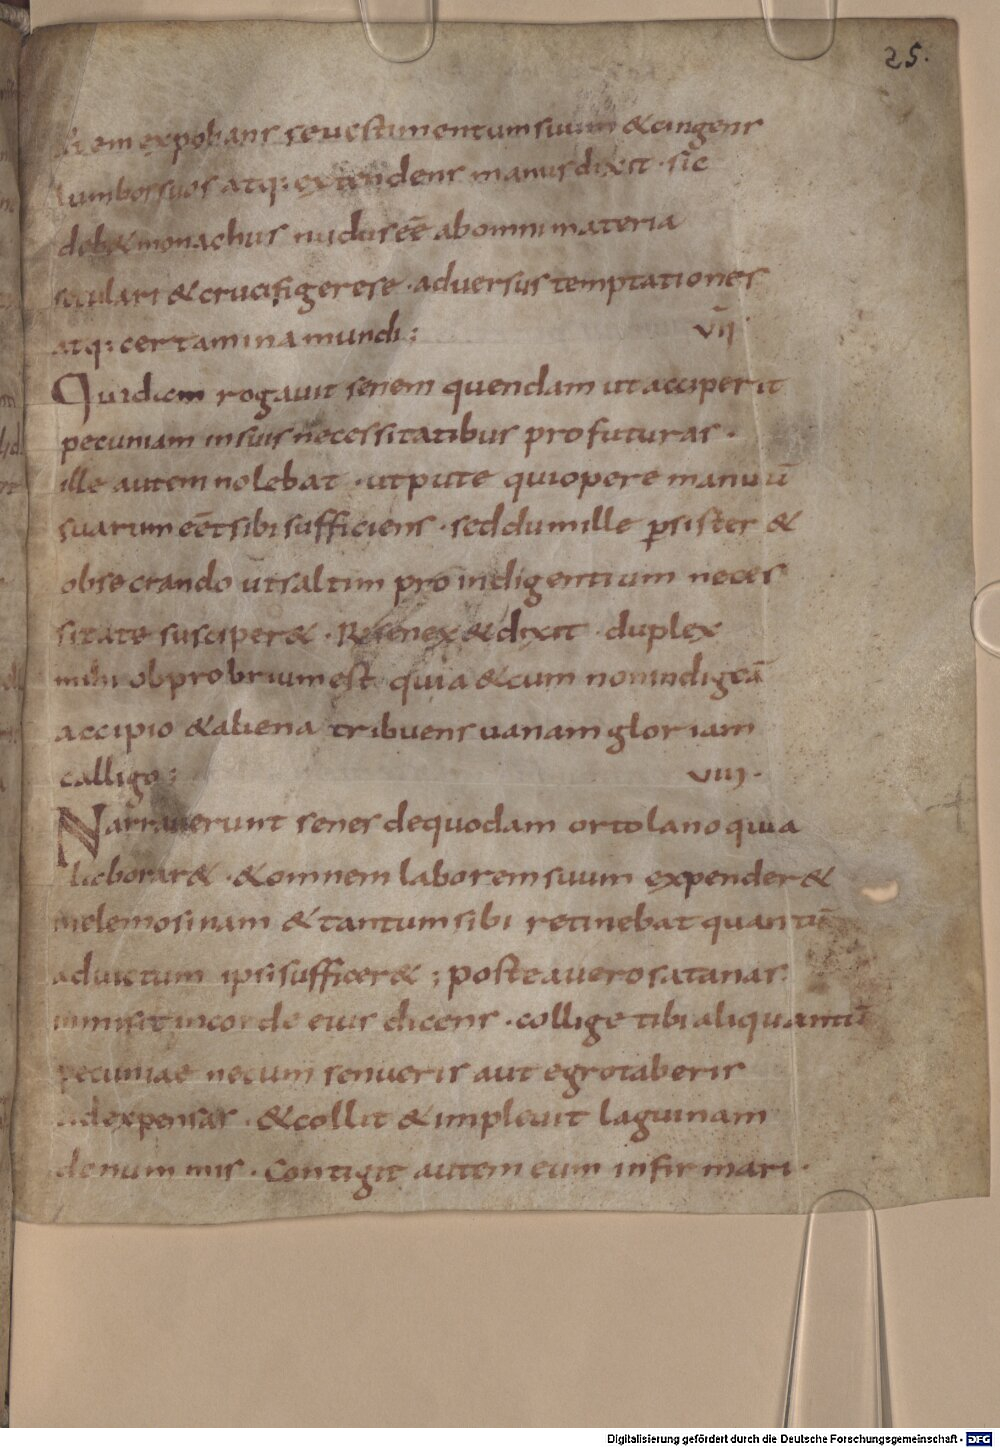 25.
expolians se uestimentum suum & cingens
lumbos suos atq: extendens manus dixit · sic
deb& monachus nudus eē ab omni materia
seculari & crucifigere se · aduersus temptationes
atq: certamina mundi; VII
Quidam rogauit senem quendam ut acciperit
pecuniam in suis necessitatibus profuturas ·
ille autem nolebat · utpute qui opere manuū
suarum eēt sibi sufficiens · sed dum ille psister&
obsecrando ut saltim pro indigentium neces
sitate susciper& · R senex & dixit · duplex
mihi obprobrium est quia & cum non indigeā
accipio & aliena tribuens uanam gloriam
calligo; VIII·
Narrauerunt senes de quodam ortolano quia
laborar& · & omnem laborem suum expender&
in elemosinam & tantum sibi retinebat quantū
ad uictum ipsi sufficer&; postea uero satanas
inmisit in corde eius dicens · collige tibi aliquantū
pecuniae ne cum senueris aut egrotaberis
ad expensas · & collit & impleuit laguinam
de nummis · Contigit autem eum infirmari·
Digitalisierung gefördert durch die Deutsche Forschungsgemeinschaft - DFG